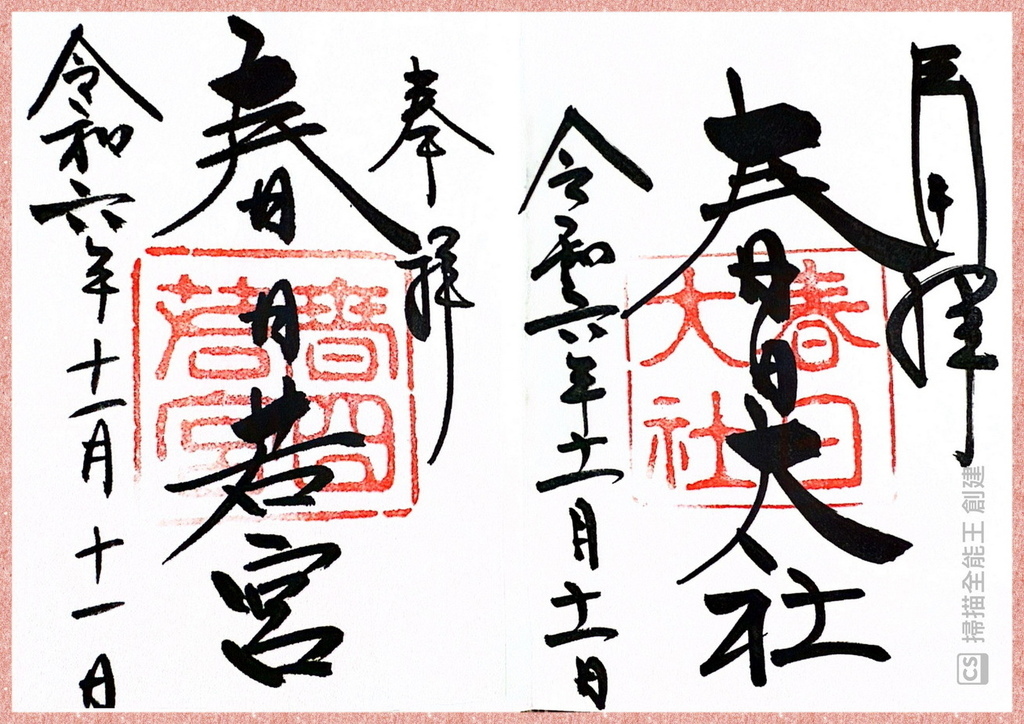 拝
春日大社
令和六年十一月十一日
春日
大社
奉拝
春日若宮
令和六年十一月十一日
春日
若宮
CS 掃描全能王 創建